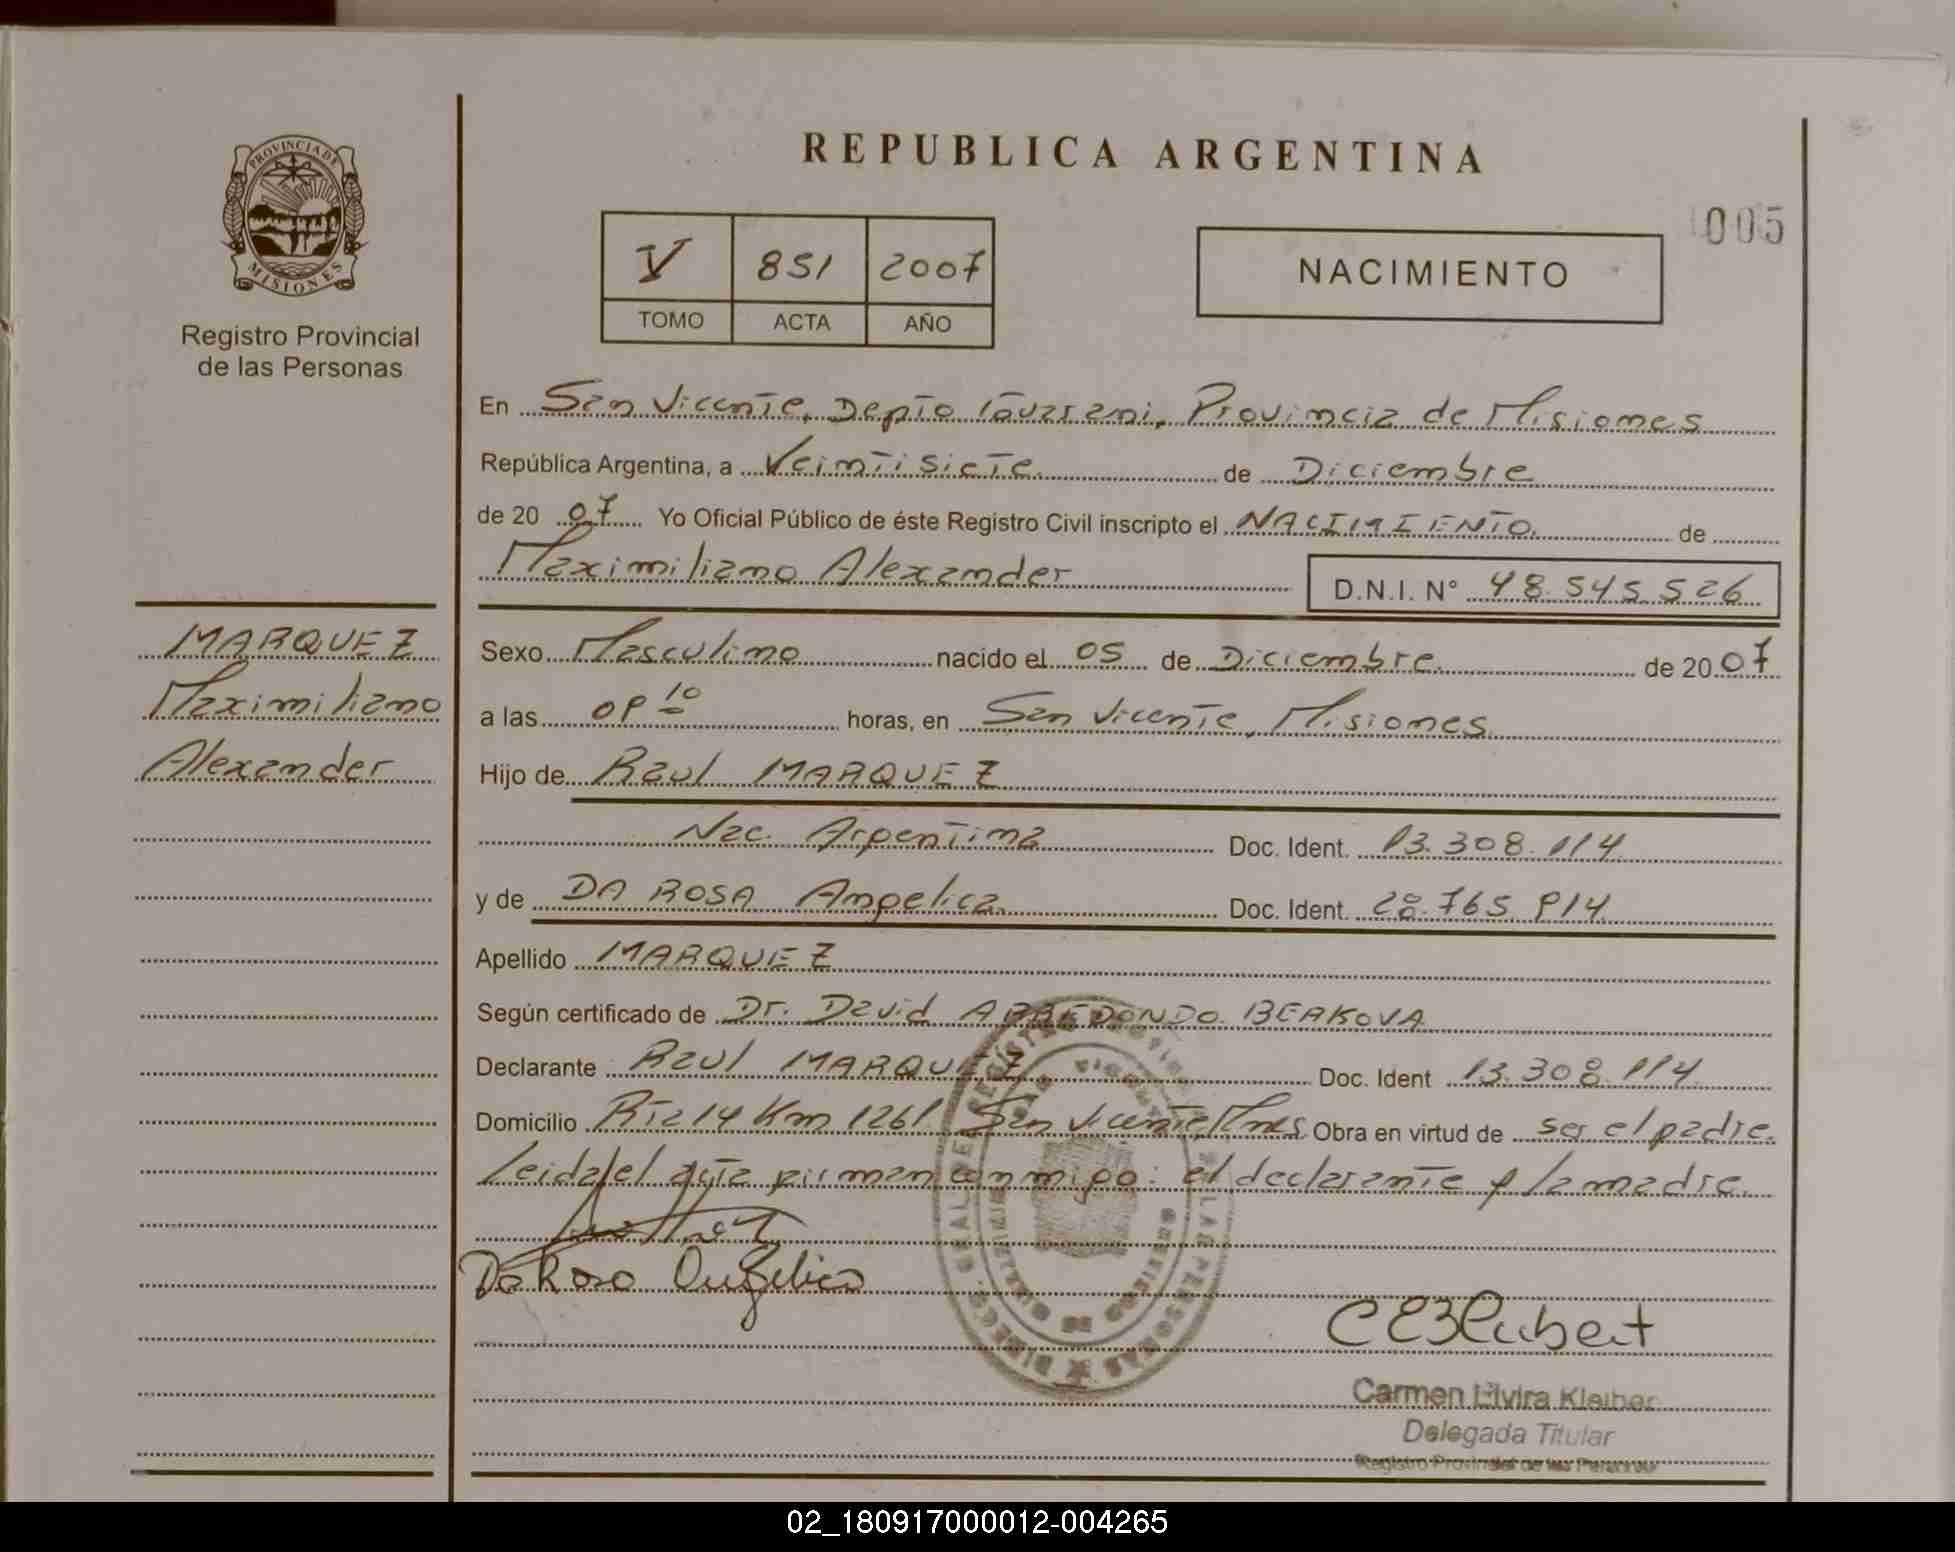 PROVINCIA DE
MISIONES
Registro Provincial
de las Personas
REPUBLICA ARGENTINA
005
V 851 2007
TOMO ACTA AÑO
NACIMIENTO
En San Vicente, Depto Guarani, Provincia de Misiones
República Argentina, a Veintisiete de Diciembre
de 20 07 Yo Oficial Público de éste Registro Civil inscripto el NACIMIENTO de
Maximiliano Alexander D.N.I. N° 48.545.526
MARQUEZ
Maximiliano
Alexander
Sexo Masculino nacido el 05 de Diciembre de 20 07
a las 09 10 horas, en San Vicente, Misiones
Hijo de Raul MARQUEZ
Nac. Argentina Doc. Ident. 13.308.114
y de DA ROSA Angelica Doc. Ident. 28.765.914
Apellido MARQUEZ
Según certificado de Dr. David ARREDONDO BERKOVA
Declarante Raul MARQUEZ Doc. Ident 13.308.114
Domicilio Rta 14 Km 1261 San Vicente, Mnes Obra en virtud de ser el padre.
Leida el acta firman conmigo: el declarante y la madre.
Da Rosa Angelica
Carmen Elvira Kleiber
Delegada Titular
Registro Provincial de las Personas
02_180917000012-004265